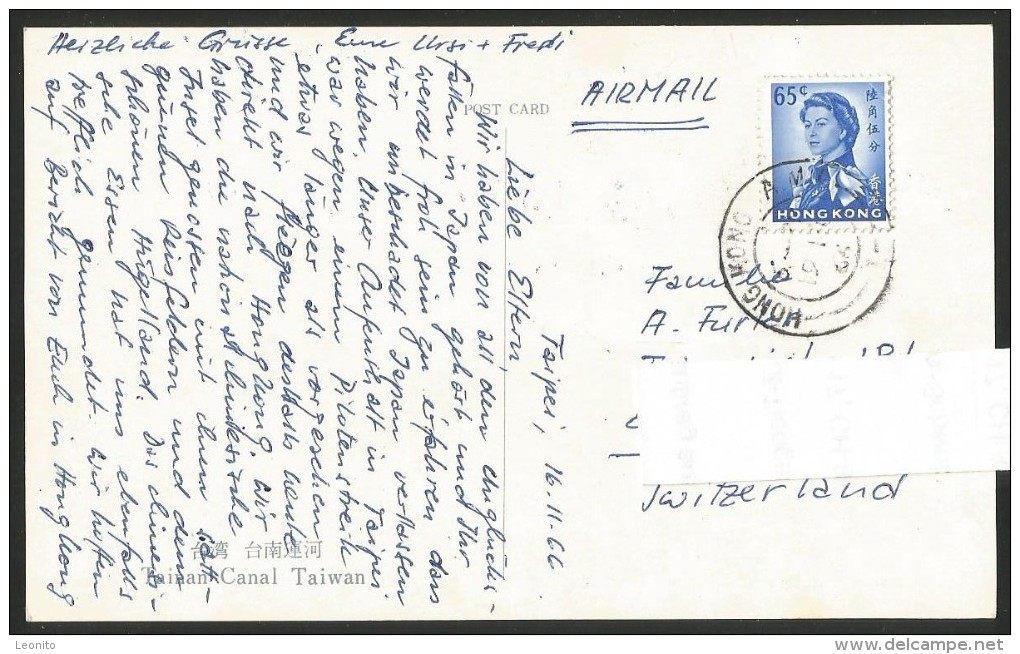 Taipei, 16.11.66
Liebe Eltern,
Wir haben von all den Unglücks-
fällen in Japan gehört und Ihr
werdet froh sein zu erfahren dass
wir unbeschadet Japan verlassen
haben. Unser Aufenthalt in Taipei
war wegen einem Pilotenstreik
etwas länger als vorgesehen
und wir fliegen deshalb heute
direkt nach HongKong. Wir
haben die nationalchinesische
Insel genossen mit ihren satt-
grünen Reisfeldern und dem
schönen Hügelland. Das chinesi-
sche Essen hat uns ebenfalls
trefflich gemundet. Wir hoffen
auf Bericht von Euch in HongKong
Herzliche Grüsse, Eure Ursi + Fredi
POST CARD
AIRMAIL
65¢
陸角伍分
香港
HONG KONG
HONG KONG
Familie
A. Furr
Switzerland
台湾 台南運河
Tainan Canal Taiwan
Leonito
delcampe.net